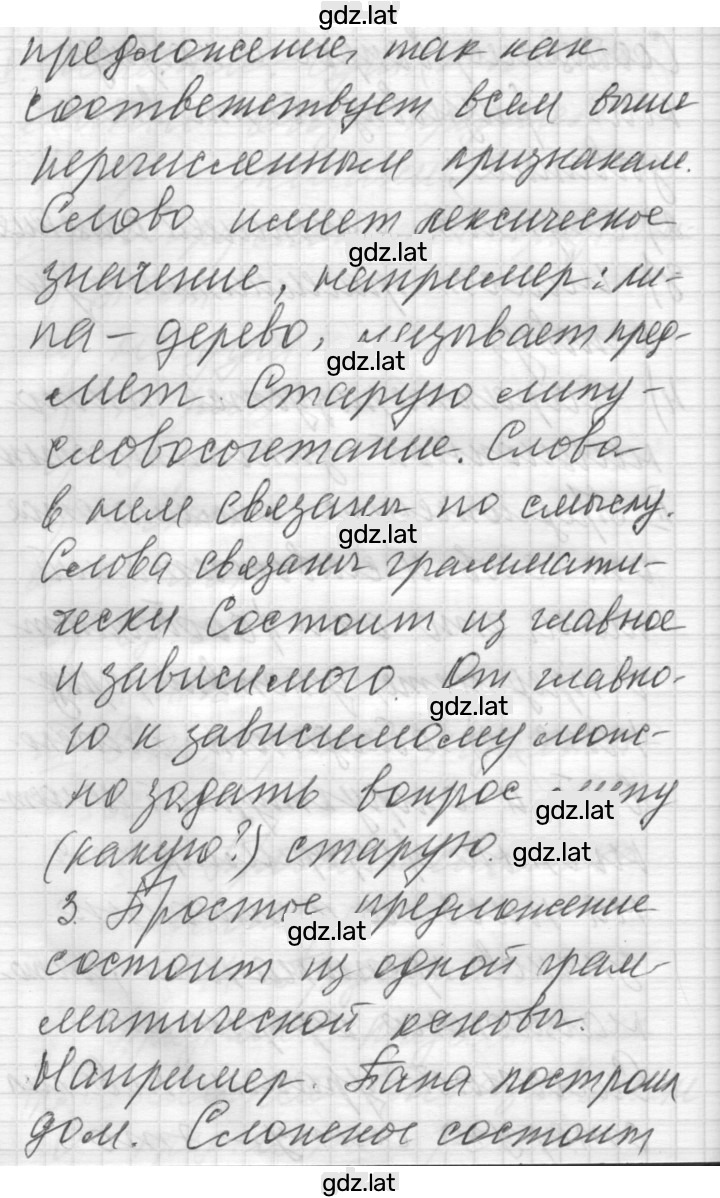 gdz.lat
предложение, так как
соответствует всем выше
перечисленным признакам.
Слово имеет лексическое
gdz.lat
значение, например: ли-
па - дерево, называет пред-
gdz.lat
мет. Старую липу -
словосочетание. Слова
в нем связаны по смыслу.
gdz.lat
Слова связаны граммати-
чески Состоит из главное
и зависимого. От главно-
gdz.lat
го к зависимому мож-
но задать вопрос липу
gdz.lat
(какую?) старую.
gdz.lat
3. Простое предложение
gdz.lat
состоит из одной грам-
матической основы.
Например. Папа построил
дом. Сложное состоит
gdz.lat